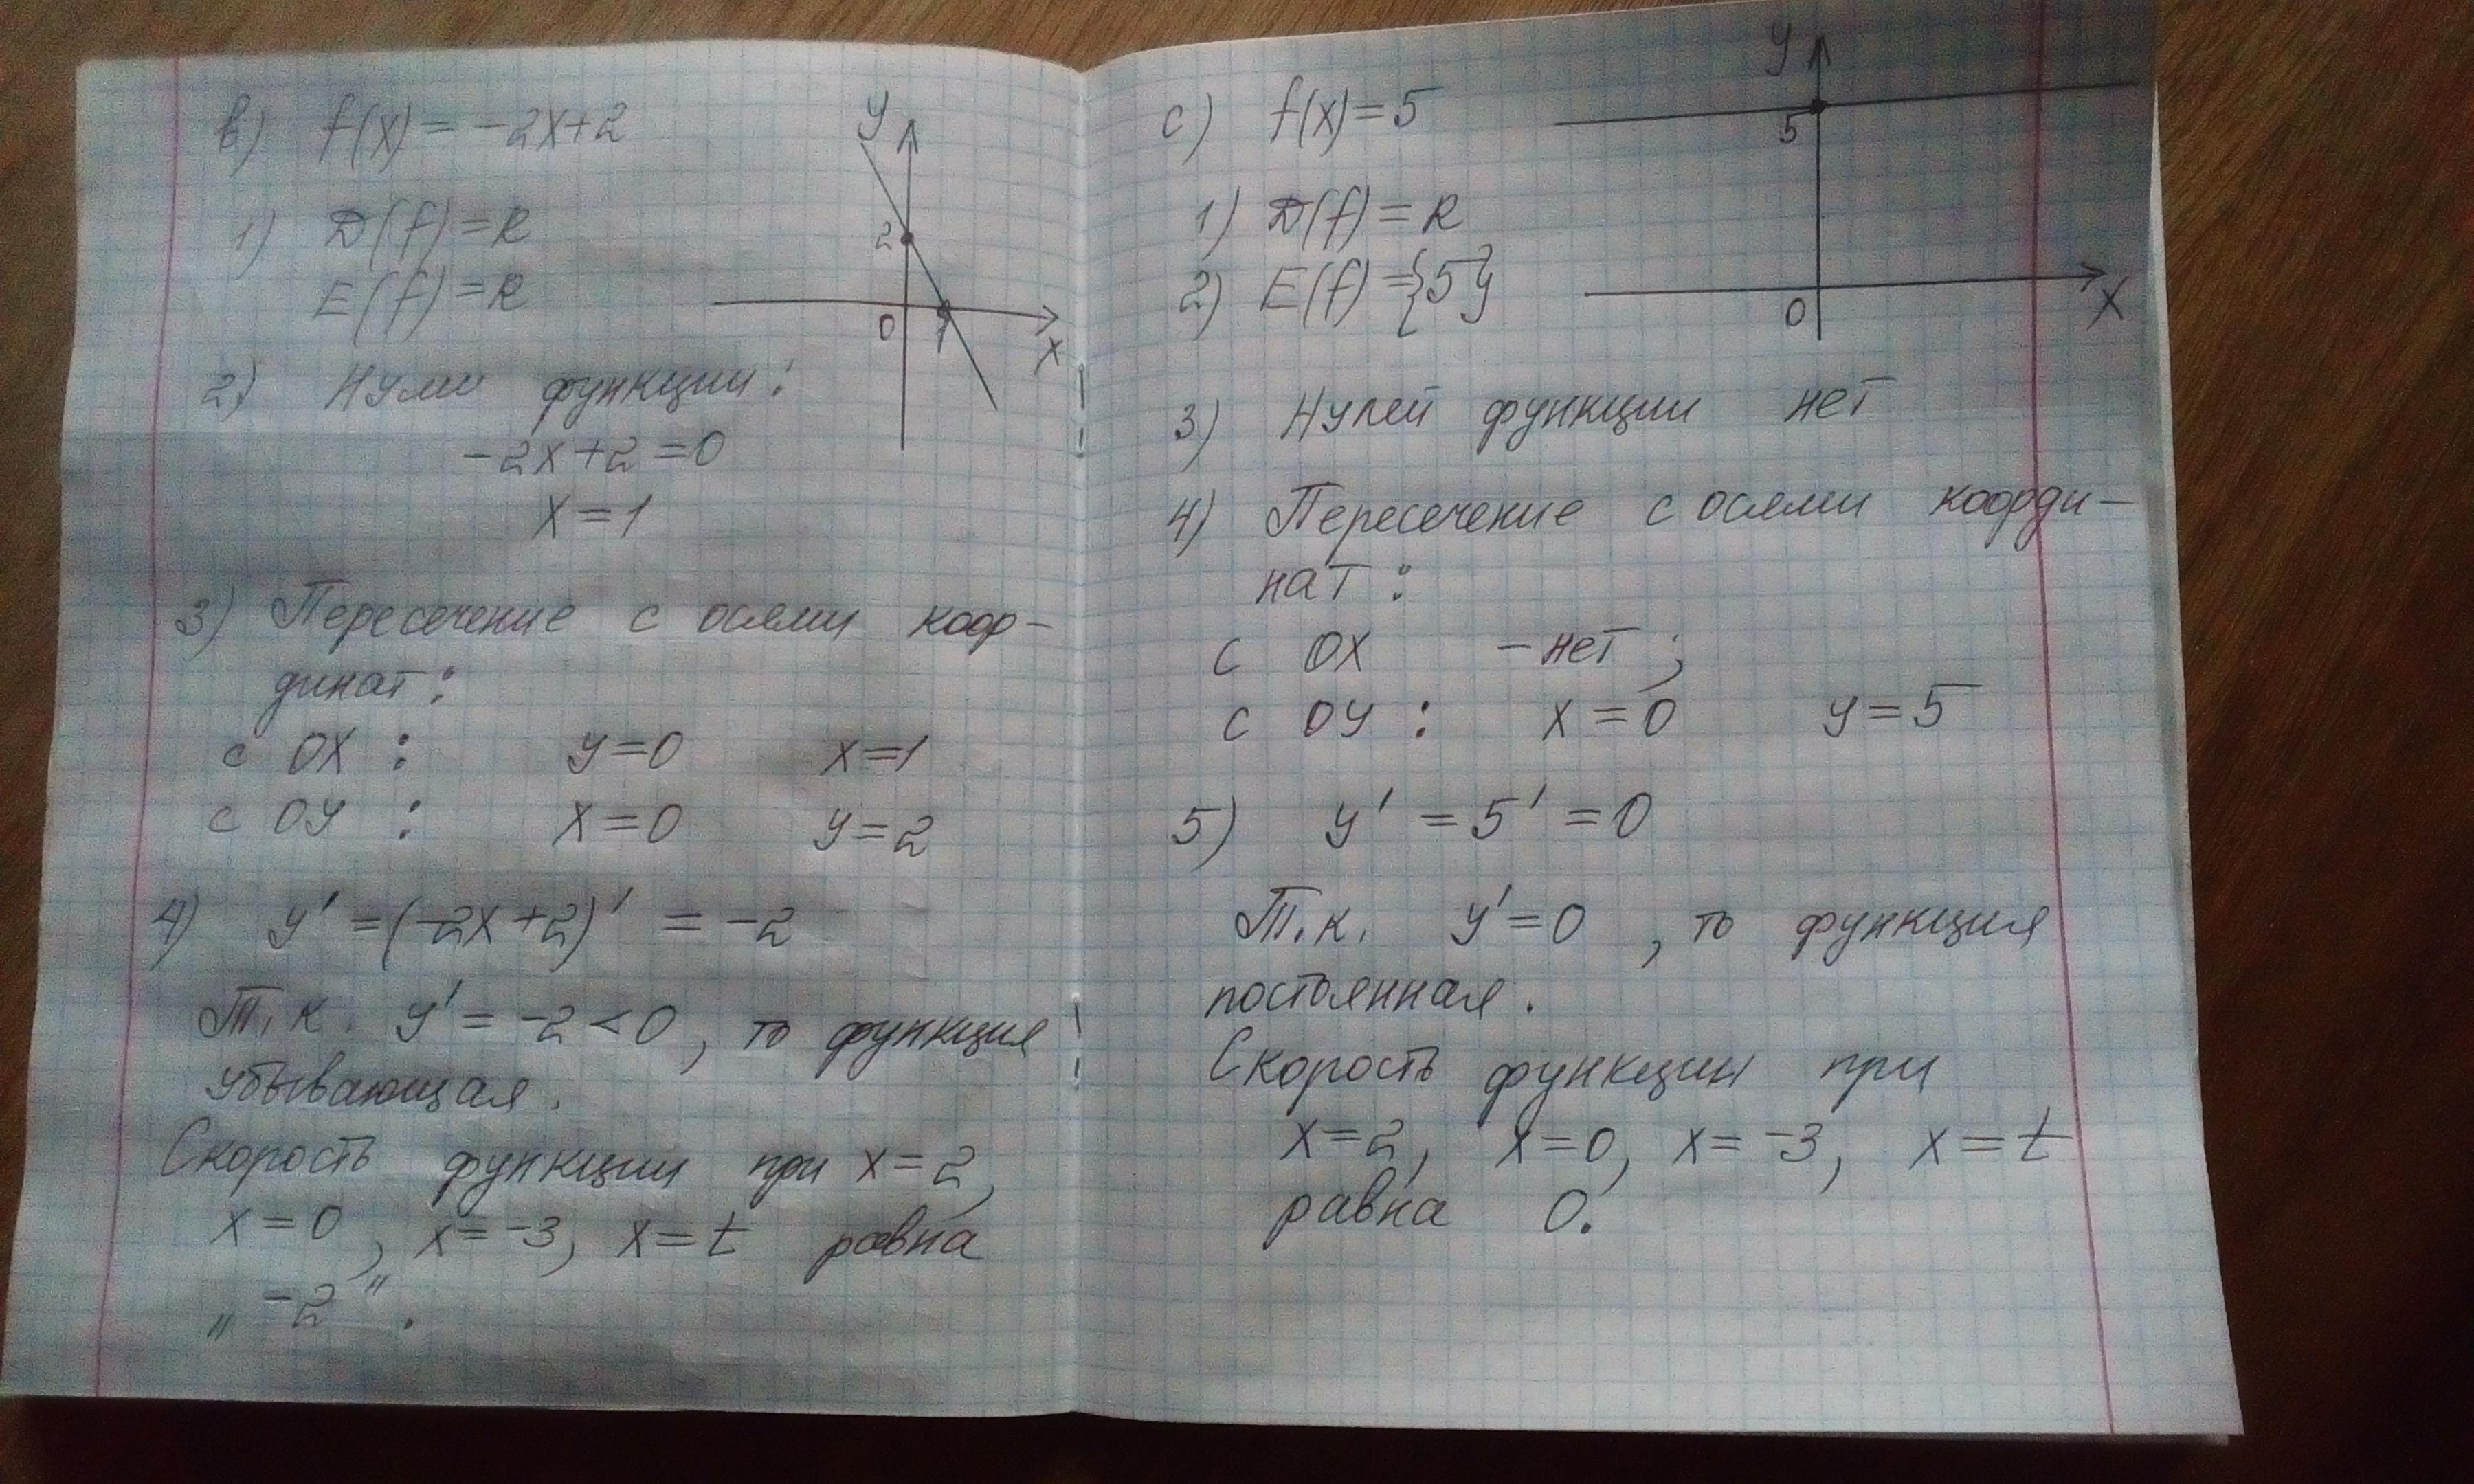 в) f(x) = -2x+2
y
1) D(f) = R
2
E(f) = R
0 1 x
2) Нули функции:
-2x+2=0
x=1
3) Пересечение с осями коор-
динат:
с OX : y=0 x=1
с OY : x=0 y=2
4) y' = (-2x+2)' = -2
Т.к. y' = -2 < 0, то функция
убывающая.
Скорость функции при x=2,
x=0, x=-3, x=t равна
„-2".
c) f(x) = 5
y
5
1) D(f) = R
2) E(f) = {5}
0 x
3) Нулей функции нет
4) Пересечение с осями коорди-
нат:
с OX - нет;
с OY : x=0 y=5
5) y' = 5' = 0
Т.к. y'=0, то функция
постоянная.
Скорость функции при
x=2, x=0, x=-3, x=t
равна 0.